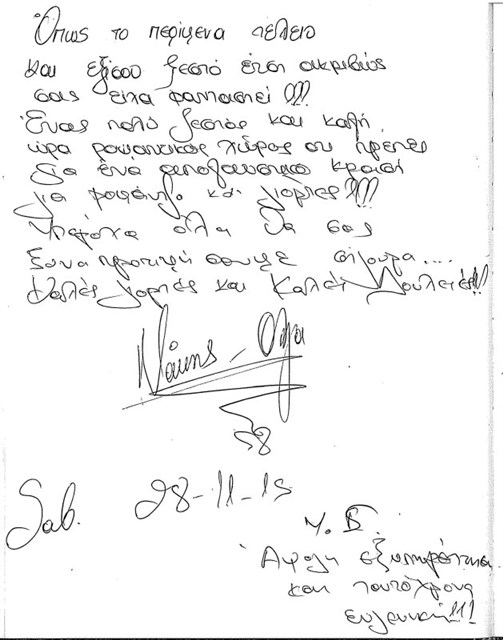 Όπως το περίμενα τέλειο
και εξίσου ζεστό έτσι ακριβώς
σας είχα φανταστεί !!!
Ένας πολύ ζεστός και καλή,
ώρα χώρος ότι πρέπει
για ένα απολαυστικό κρασί
για φαγητό και γιορτές !!!
Υπέροχα όλα θα σας
ξαναπροτιμήσουμε σίγουρα....
Καλές γιορτές και Καλές Δουλειές!!!
Νάκης - Όλγα
Sab. 28-11-15
Υ.Γ.
Άψογη εξυπηρέτηση
και ταυτόχρονα
ευγενική!!!